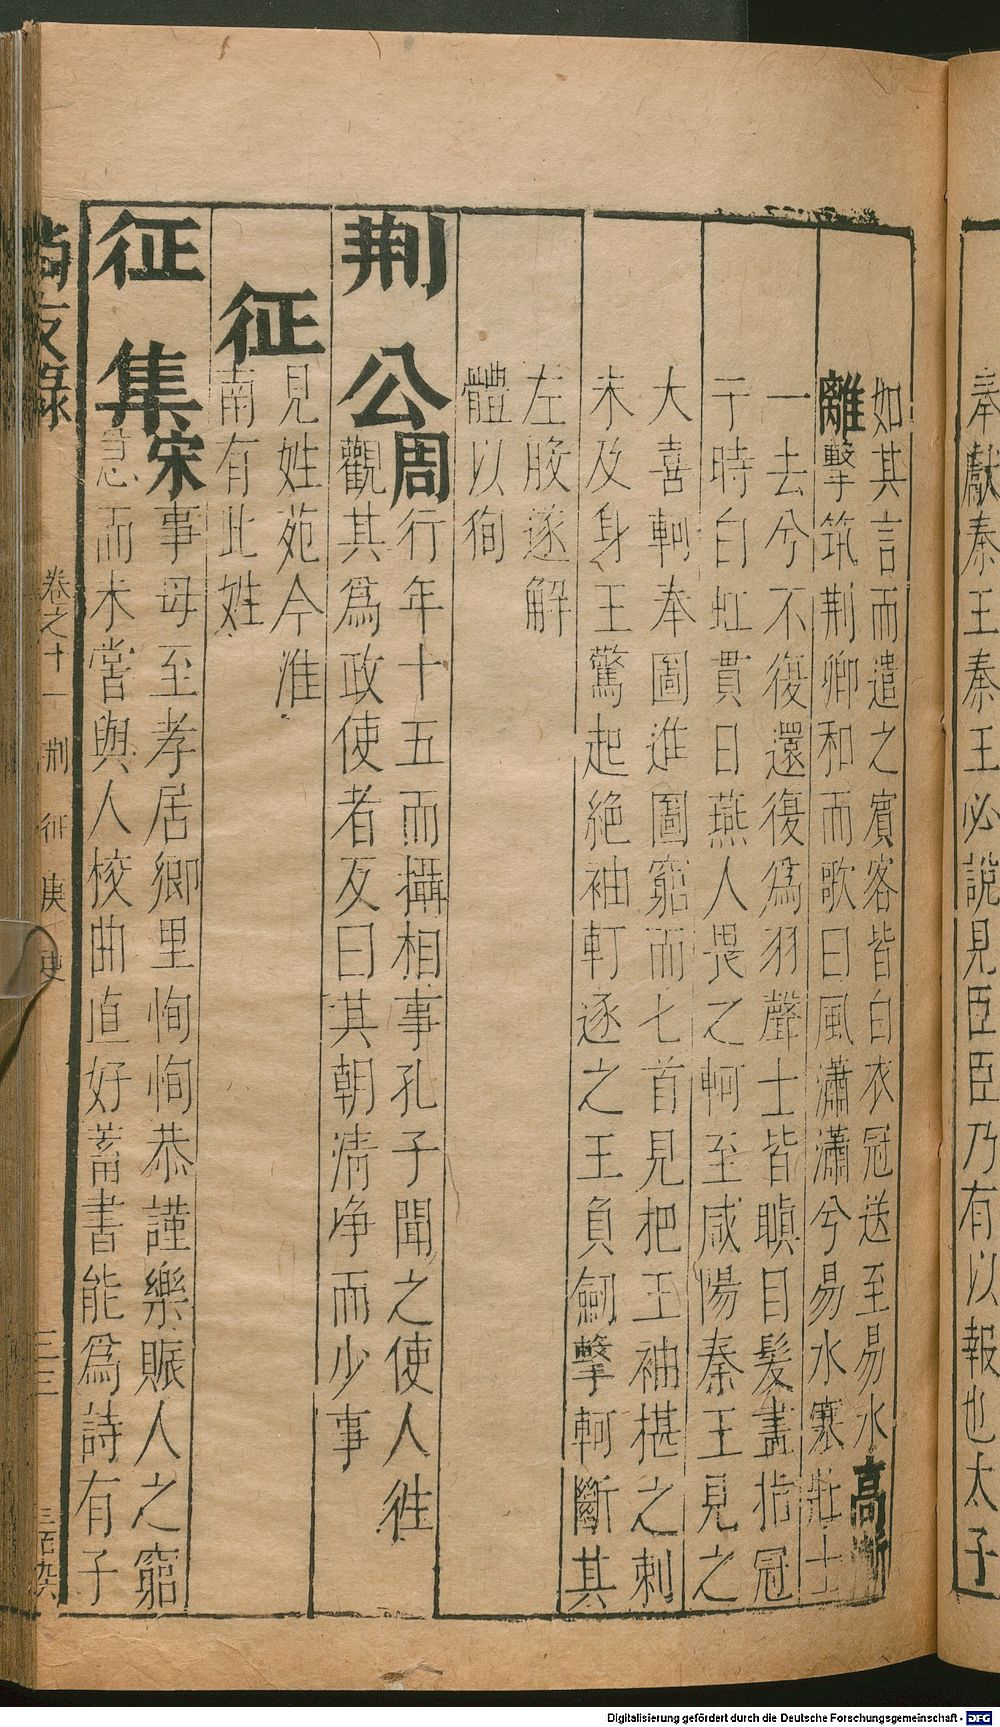 奉獻秦王秦王必說見臣臣乃有以報也太子
如其言而遣之賓客皆白衣冠送至易水高漸
離擊筑荆卿和而歌曰風瀟瀟兮易水寒壯士
一去兮不復還復爲羽聲士皆瞋目髮盡指冠
于時白虹貫日燕人畏之軻至咸陽秦王見之
大喜軻奉圖進圖窮而七首見把王袖揕之刺
未及身王驚起絶袖軻逐之王負劍擊軻斷其
左股遂解
體以徇
荆公周行年十五而攝相事孔子聞之使人徃
觀其爲政使者反曰其朝清净而少事
征見姓苑今淮
南有此姓
征集宋事母至孝居鄉里恂恂恭謹樂賑人之窮
急而未嘗與人校曲直好蓄書能爲詩有子
尚友錄 卷之十一 荆 征 庚 更 三三 三百九六
Digitalisierung gefördert durch die Deutsche Forschungsgemeinschaft - DFG